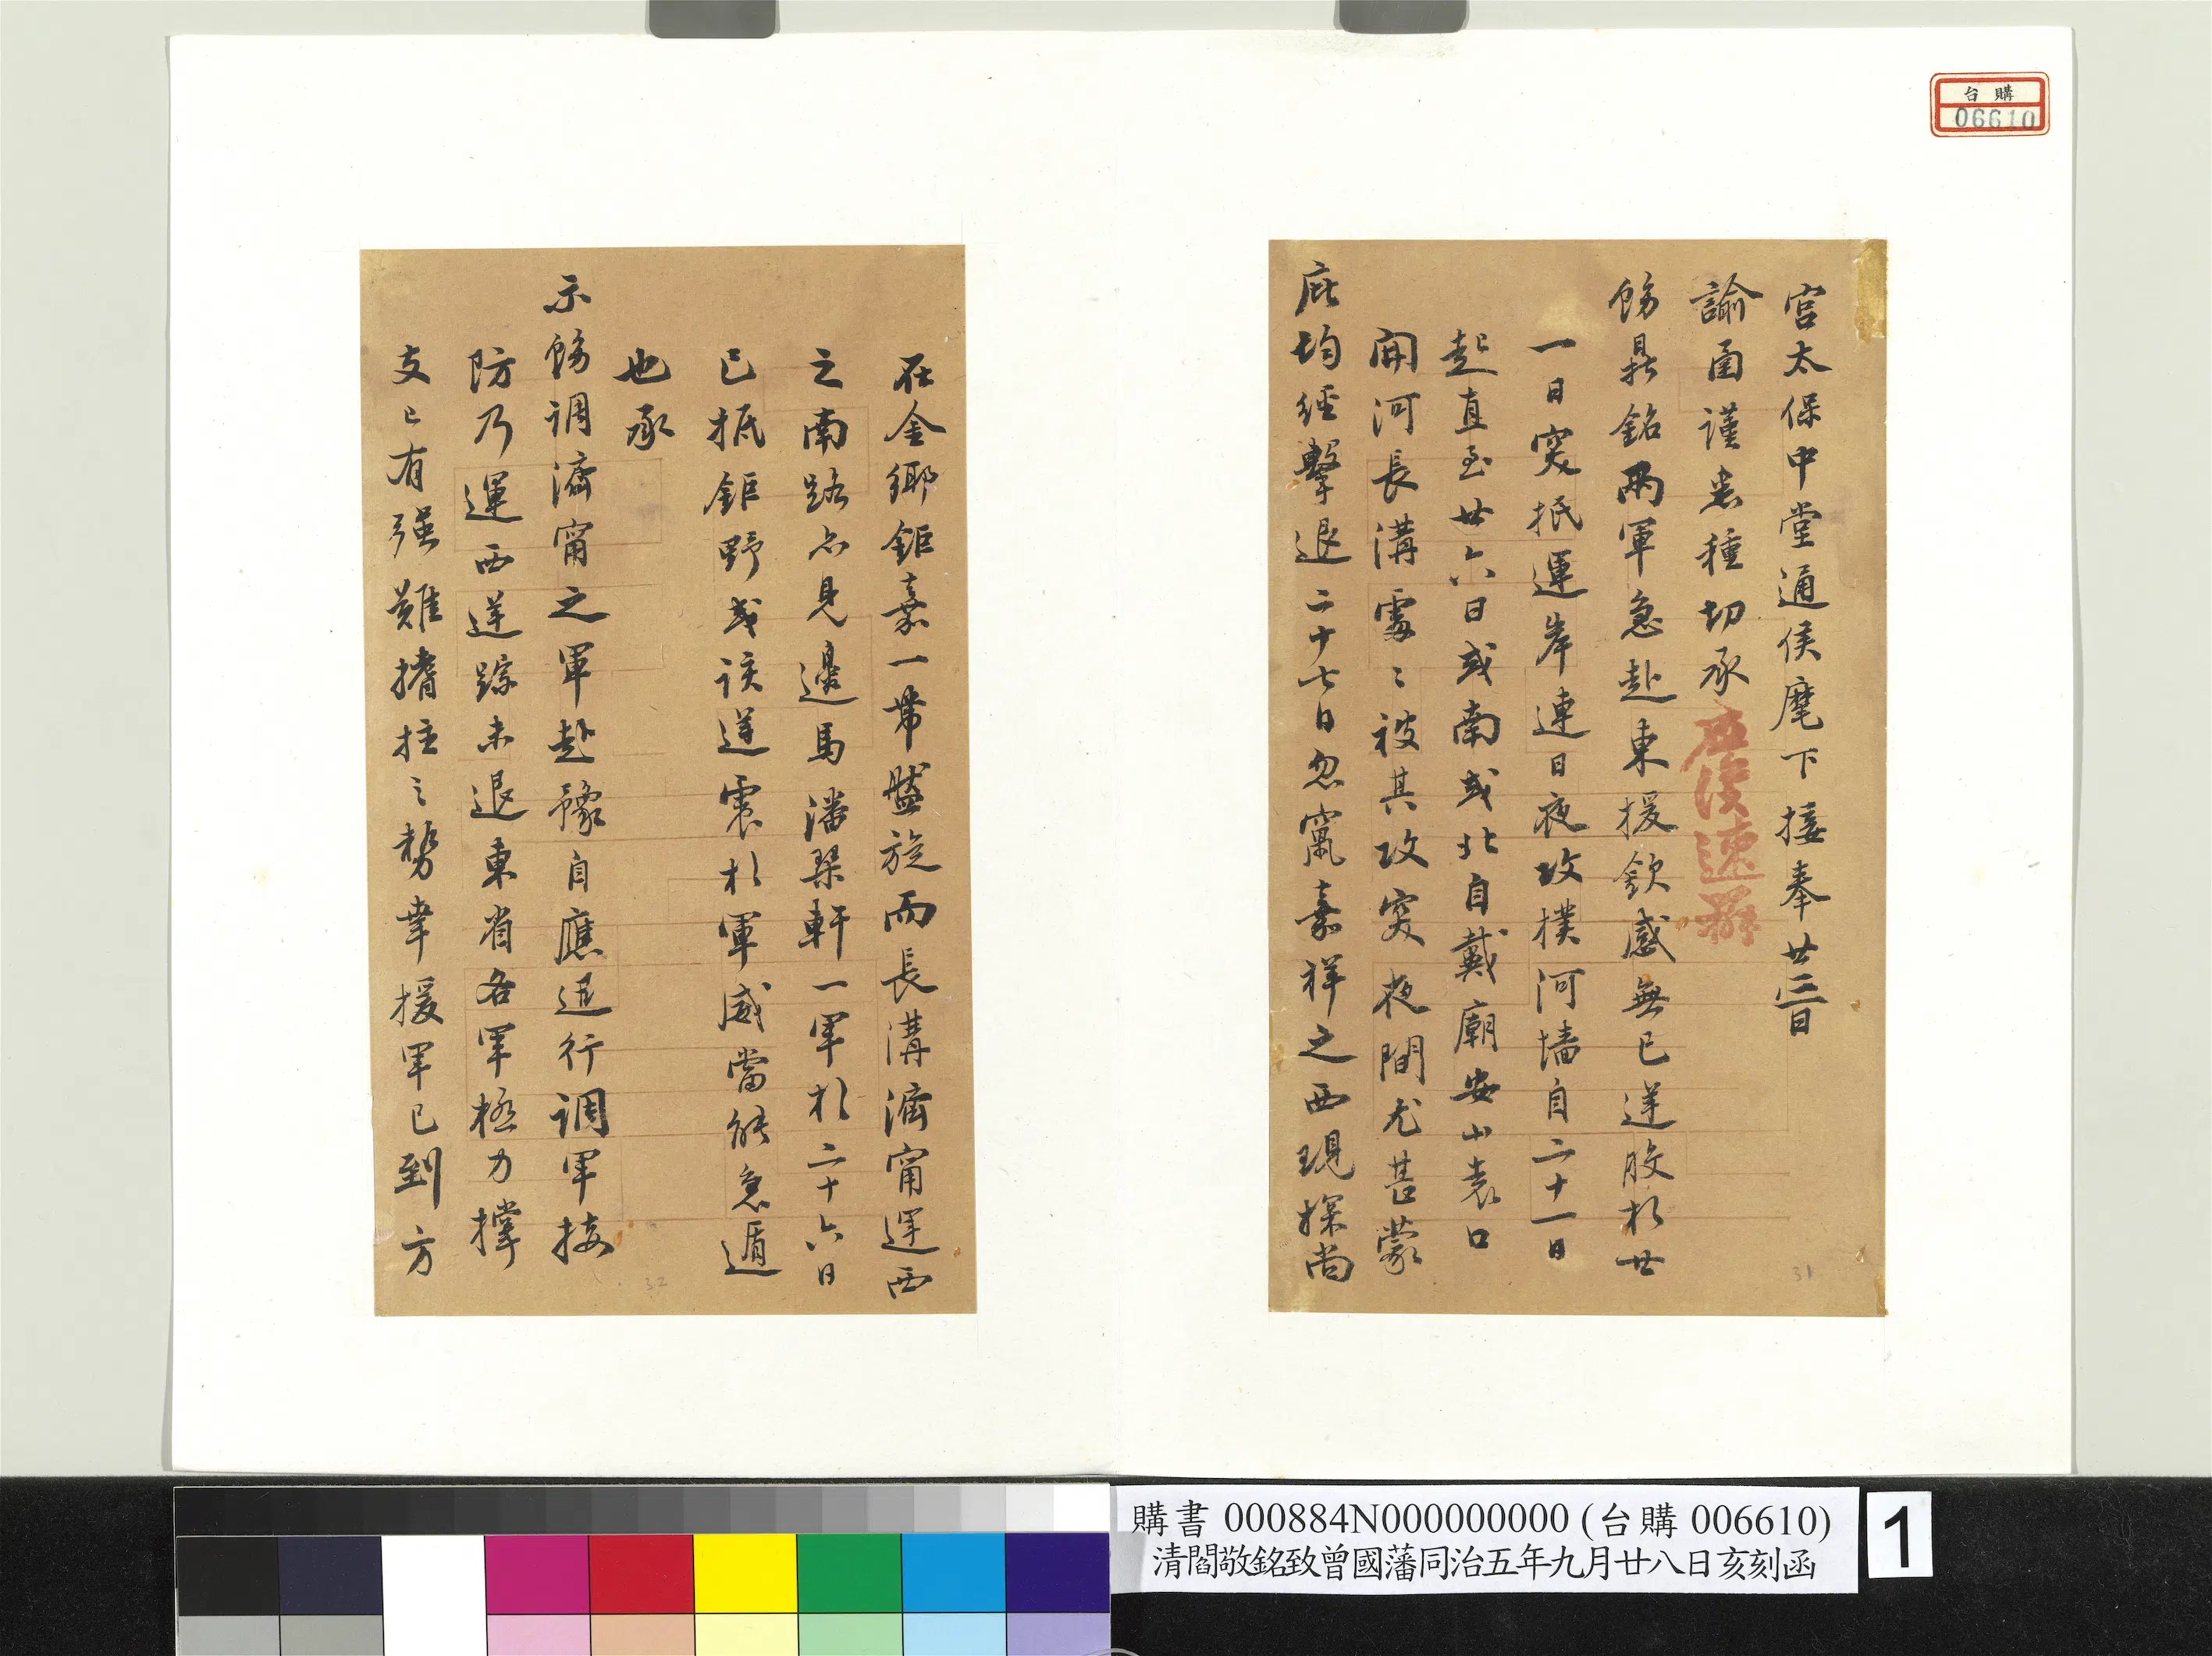 台購
06610
宮太保中堂通侯麾下接奉廿三日
諭函謹悉種切承
飭鼎銘兩軍急赴東援欽感無已逆股於廿
一日突抵運岸連日夜攻撲河墻自二十一日
起直至廿六日或南或北自戴廟安山袁口
開河長溝處〻被其攻突夜間尤甚蒙
庇均經擊退二十七日忽竄嘉祥之西現探尚
在金鄉鉅嘉一帶盤旋而長溝濟甯運西
之南路亦見邊馬潘琹軒一軍於二十六日
已抵鉅野或該逆震於軍威當能急遁
也承
示飭調濟甯之軍赴豫自應迅行調軍接
防乃運西逆蹤未退東省各軍極力撑
支已有强難搘拄之勢幸援軍已到方
31
32
購書 000884N000000000 (台購 006610)
清閻敬銘致曾國藩同治五年九月廿八日亥刻函
1